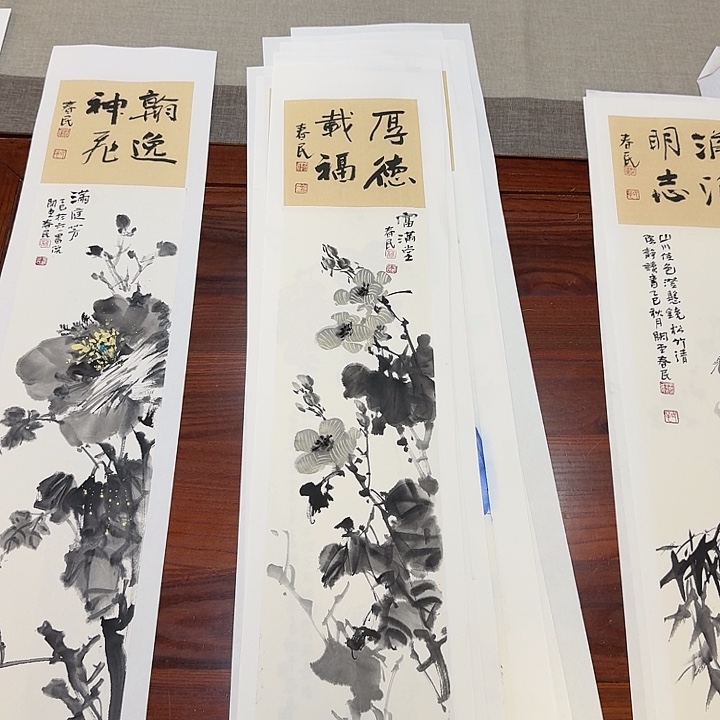 翰逸
神飛
春民
滿庭芳
春民
厚德
載福
春民
富滿堂
春民
明志
春民
山川佳色澄懸鏡松竹清
陰靜讀書乙巳秋月
春民